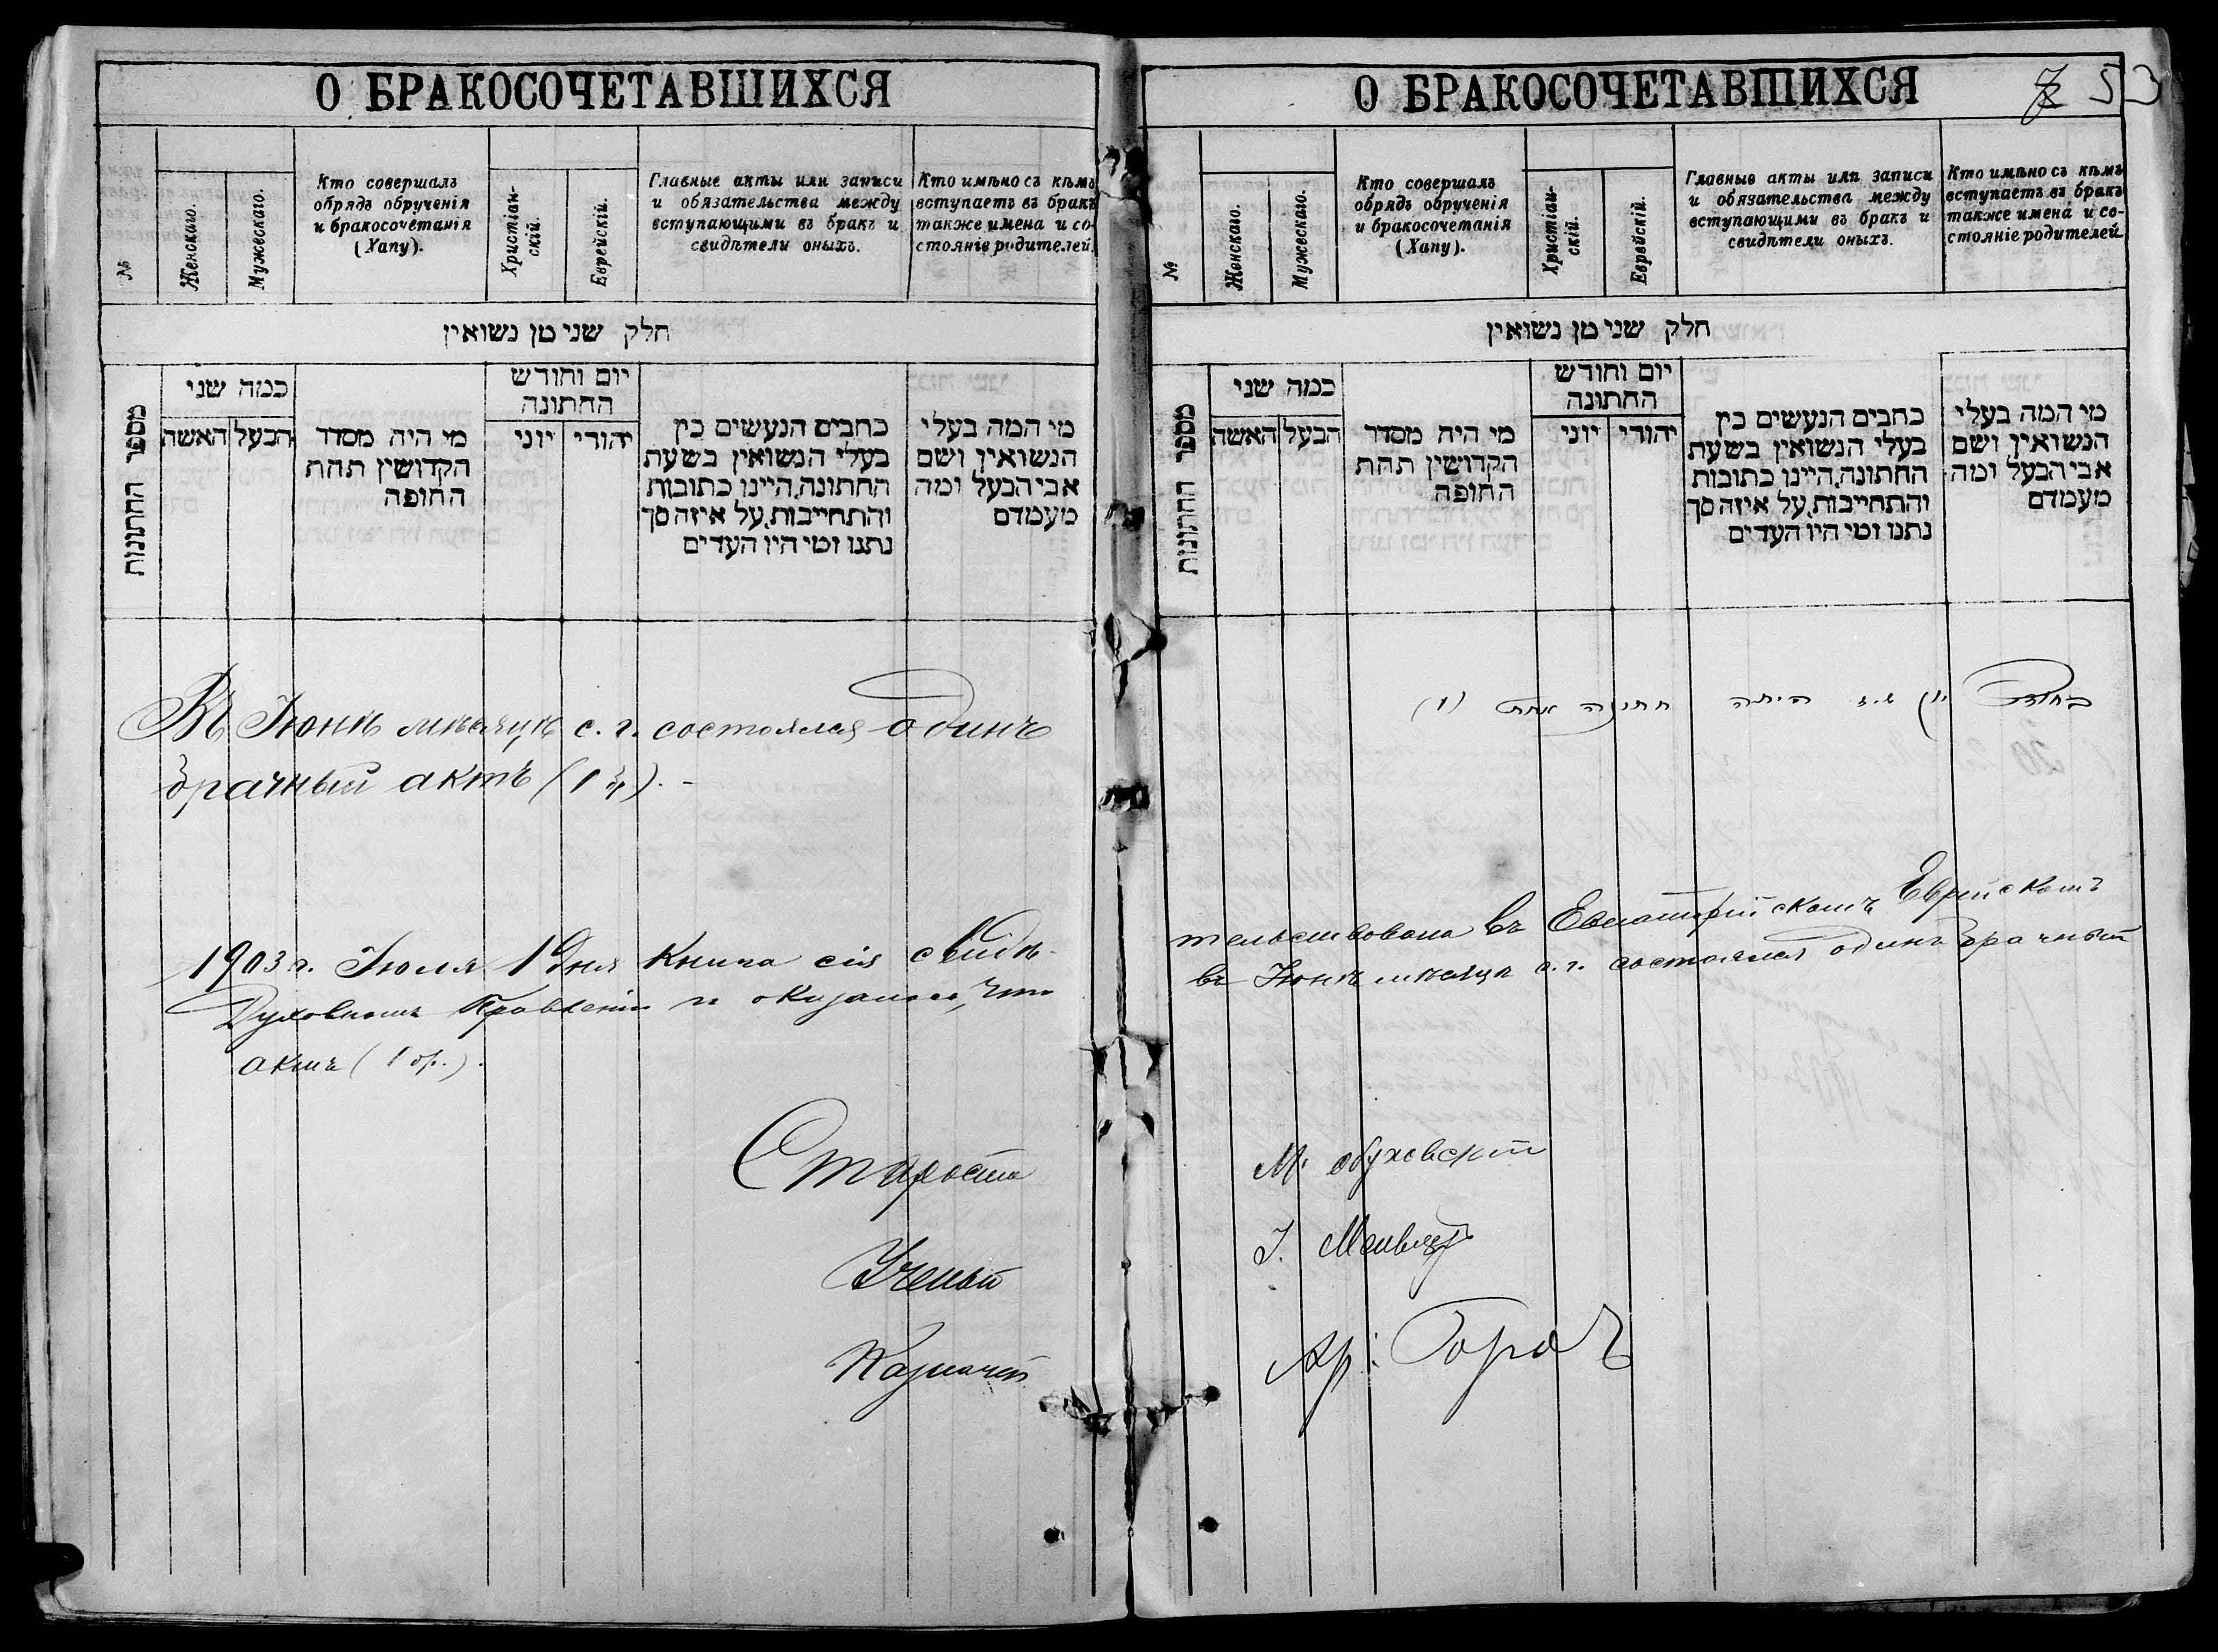 О БРАКОСОЧЕТАВШИХСЯ
№
Женскаго.
Мужескаго.
Кто совершалъ
обрядъ обрученія
и бракосочетанія
(Хапу).
Христіан-
скій.
Еврейскій.
Главные акты или записи
и обязательства между
вступающими въ бракъ и
свидѣтели оныхъ.
Кто имѣно съ кѣмъ
вступаетъ въ бракъ
также имена и со-
стояніе родителей.
חלק שני מן נשואין
מספר החתונות
כמה שני
האשה
הבעל
מי היה מסדר
הקדושין תחת
החופה
יום וחודש
החתונה
יוני
יהודי
כתבים הנעשים בין
בעלי הנשואין בשעת
החתונה, היינו כתובות
והתחייבות, על איזה סך
נתנו ומי היו העדים
מי המה בעלי
הנשואין ושם
אבי הבעל ומה
מעמדם
Въ Іюнѣ мѣсяцѣ с. г. состоялся одинъ
брачный актъ (1 бр). -
1903 г. Іюля 1 дня Книга сія свидѣ-
Духовномъ Правленіи и оказалось, что
актъ (1 бр.).
Староста
Ученый
Казначей
О БРАКОСОЧЕТАВШИХСЯ
7 53
№
Женскаго.
Мужескаго.
Кто совершалъ
обрядъ обрученія
и бракосочетанія
(Хапу).
Христіан-
скій.
Еврейскій.
Главные акты или записи
и обязательства между
вступающими въ бракъ и
свидѣтели оныхъ.
Кто имѣно съ кѣмъ
вступаетъ въ бракъ
также имена и со-
стояніе родителей.
חלק שני מן נשואין
מספר החתונות
כמה שני
האשה
הבעל
מי היה מסדר
הקדושין תחת
החופה
יום וחודש
החתונה
יוני
יהודי
כתבים הנעשים בין
בעלי הנשואין בשעת
החתונה, היינו כתובות
והתחייבות, על איזה סך
נתנו ומי היו העדים
מי המה בעלי
הנשואין ושם
אבי הבעל ומה
מעמדם
בחודש יון ש.ז היתה חתונה אחת (1)
тельствована въ Евпаторійскомъ Еврейскомъ
въ Іюнѣ мѣсяцѣ с. г. состоялся одинъ брачный
М. Обуховскій
І.
Ар: